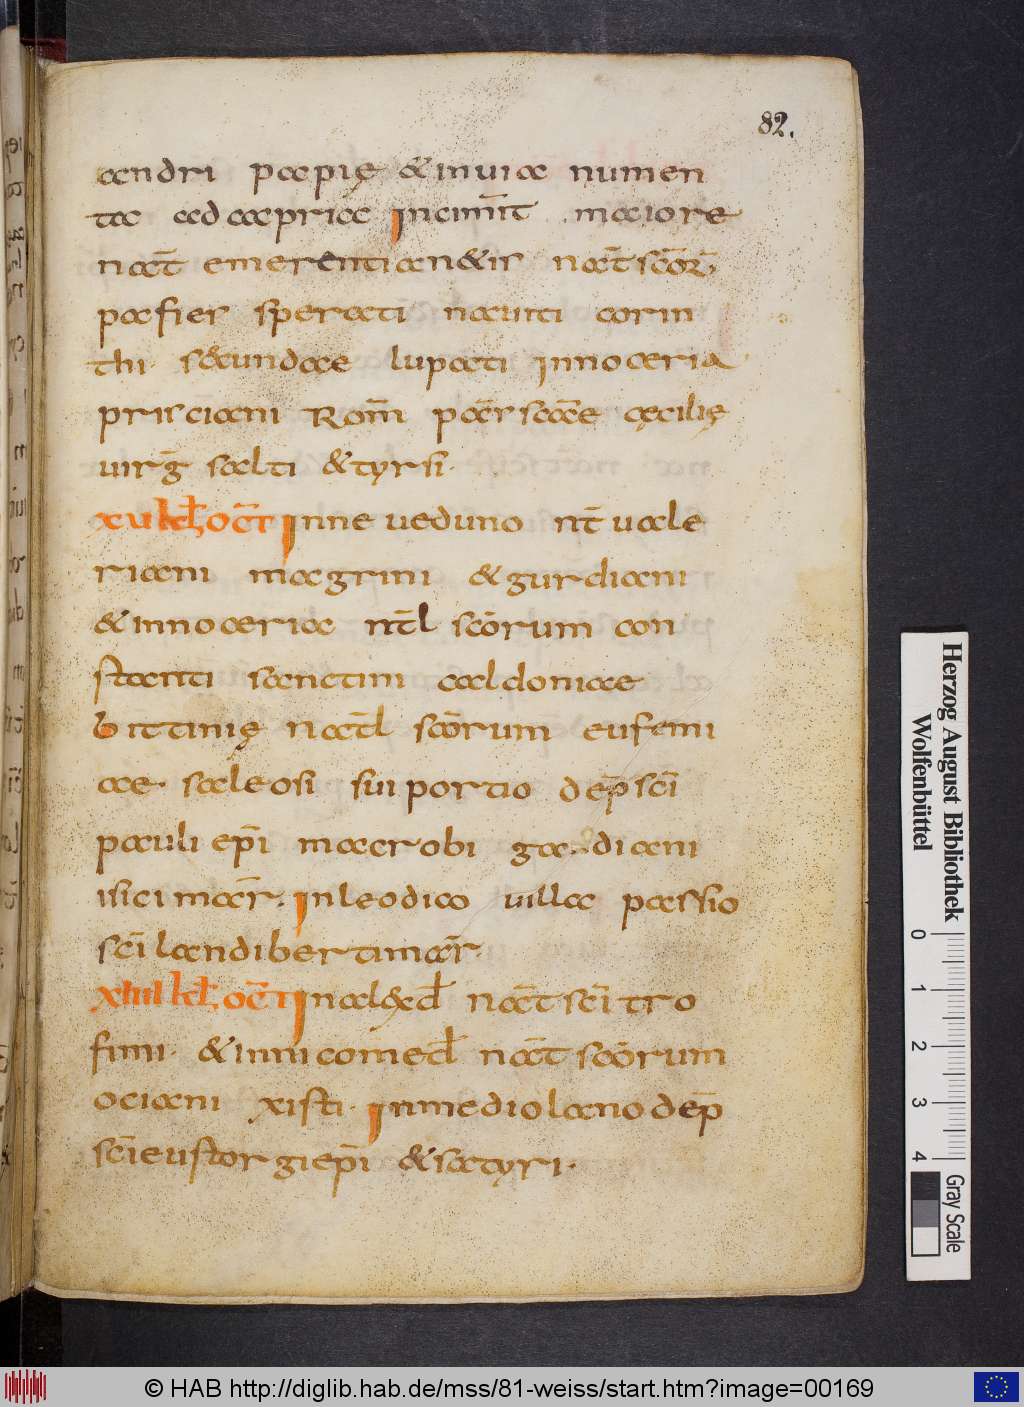 82.
andri papię & inuia numen
tac ad capriac Incim̄it maiore
nat̄ emerentian& ir nat̄ scōr̄
pafier sperati nauiti corin
thi· secundae lupati Innoceria·
prisciani Rom̄ pac̄r scāce cęcilię
uirḡ salti & tyrsi·
xuı kl̄ oct̄ Inneueduno nt̄ uale
riani magrini & gurdiani
& innoceriac nt̄l scōrum con
stanti sanctini caldoniae
bittinię nat̄l scōrum eufemi
ae· saleosi sui portio dep̄ scī
pauli ep̄i macrobi ga..diani
isici mar̄· Inleodico uilla passio
scī landiberti mar̄r·
xuıııı kl̄ oct̄ Inalexd̄ nat̄ scī tro
fimi· & innicomed̄ nat̄ scōrum
ociani xisti· Inmediolano dep̄
scī eustorgi ep̄i & satyri·
Herzog August Bibliothek
Wolfenbüttel
0 1 2 3 4
Gray Scale
© HAB http://diglib.hab.de/mss/81-weiss/start.htm?image=00169